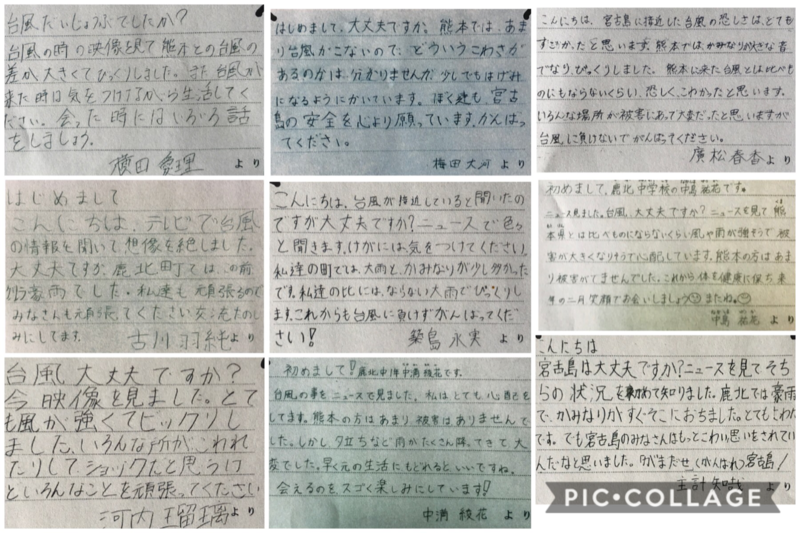 台風だいじょうぶでしたか?
台風の時の映像を見て熊本との台風の
差が大きくてびっくりしました。また台風が
来た時は気をつけてかつ生活してく
ださい。会った時にはいろいろ話
をしましょう。
より
はじめまして、大丈夫ですか。熊本では、あま
り台風がこないので、どういうこわさが
あるのかは、分かりませんが、少しでもはげみ
になるようにかいています。ぼく達も、宮古
島の安全を心より願っています。がんばっ
てください。
梅田大河より
こんにちは、宮古島に接近した台風の恐しさは、とても
すごかったと思います。熊本では、かみなりが大きな音
でなり、びっくりしました。熊本に来た台風とは比べも
のにもならないくらい、恐しく、こわかったと思います。
いろんな場所が被害にあって大変だったと思いますが
台風に負けないでがんばってください。
廣松春香より
はじめまして
こんにちは、テレビで台風
の情報を聞いて、想像を絶しました。
大丈夫ですか。鹿北町では、この前
豪雨でした。私達も頑張るので
みなさんも頑張ってください。交流たのし
みにしてます。
古川羽純より
こんにちは、台風が接近していると聞いたの
ですが大丈夫ですか?ニュースで色々
と聞きます。けがには、気をつけてください。
私達の町では、大雨と、かみなりが少し多かった
です。私達の比には、ならない大雨でびっくりし
ます。これからも台風に負けずがんばってくだ
さい!
築島永実より
初めまして、鹿北中学校の中島 花です。
ニュース見ました。台風、大丈夫ですか?ニュースを見て熊
本県とは比べものにならないくらい風や雨が強そうで被
害が大きくなりそうで心配しています。熊本の方はあま
り被害がでませんでした。これから体も健康に保ち、来
年の二月笑顔でお会いしましょう またね。
中島 花より
台風、大丈夫ですか?
今映像を見ました。とて
も風が強くてビックリし
ました、いろんな所がこわれ
たりしてショックだと思うけ
どいろんなことを頑張ってください
河内瑠璃より
初めまして!鹿北中1年中満綾花です。
台風の事をニュースで見ました。私はとても心配を
してます。熊本の方はあまり被害はありませんで
した。しかし、夕立ちなど雨がたくさん降ってきて、大
変でした。早く元の生活にもどれるといいですね。
会えるのをスゴく楽しみにしています!
中満綾花より
こんにちは
宮古島は大丈夫ですか?ニュースを見てそち
らの状況を初めて知りました。鹿北では豪雨
で、かみなりがすぐそこにおちました。とてもこわかった
です。でも宮古島のみなさんはもっとこわい思いをされてい
んだなと思いました。「がまだせ(がんばれ)宮古島!
主計知哉より
PIC•COLLAGE